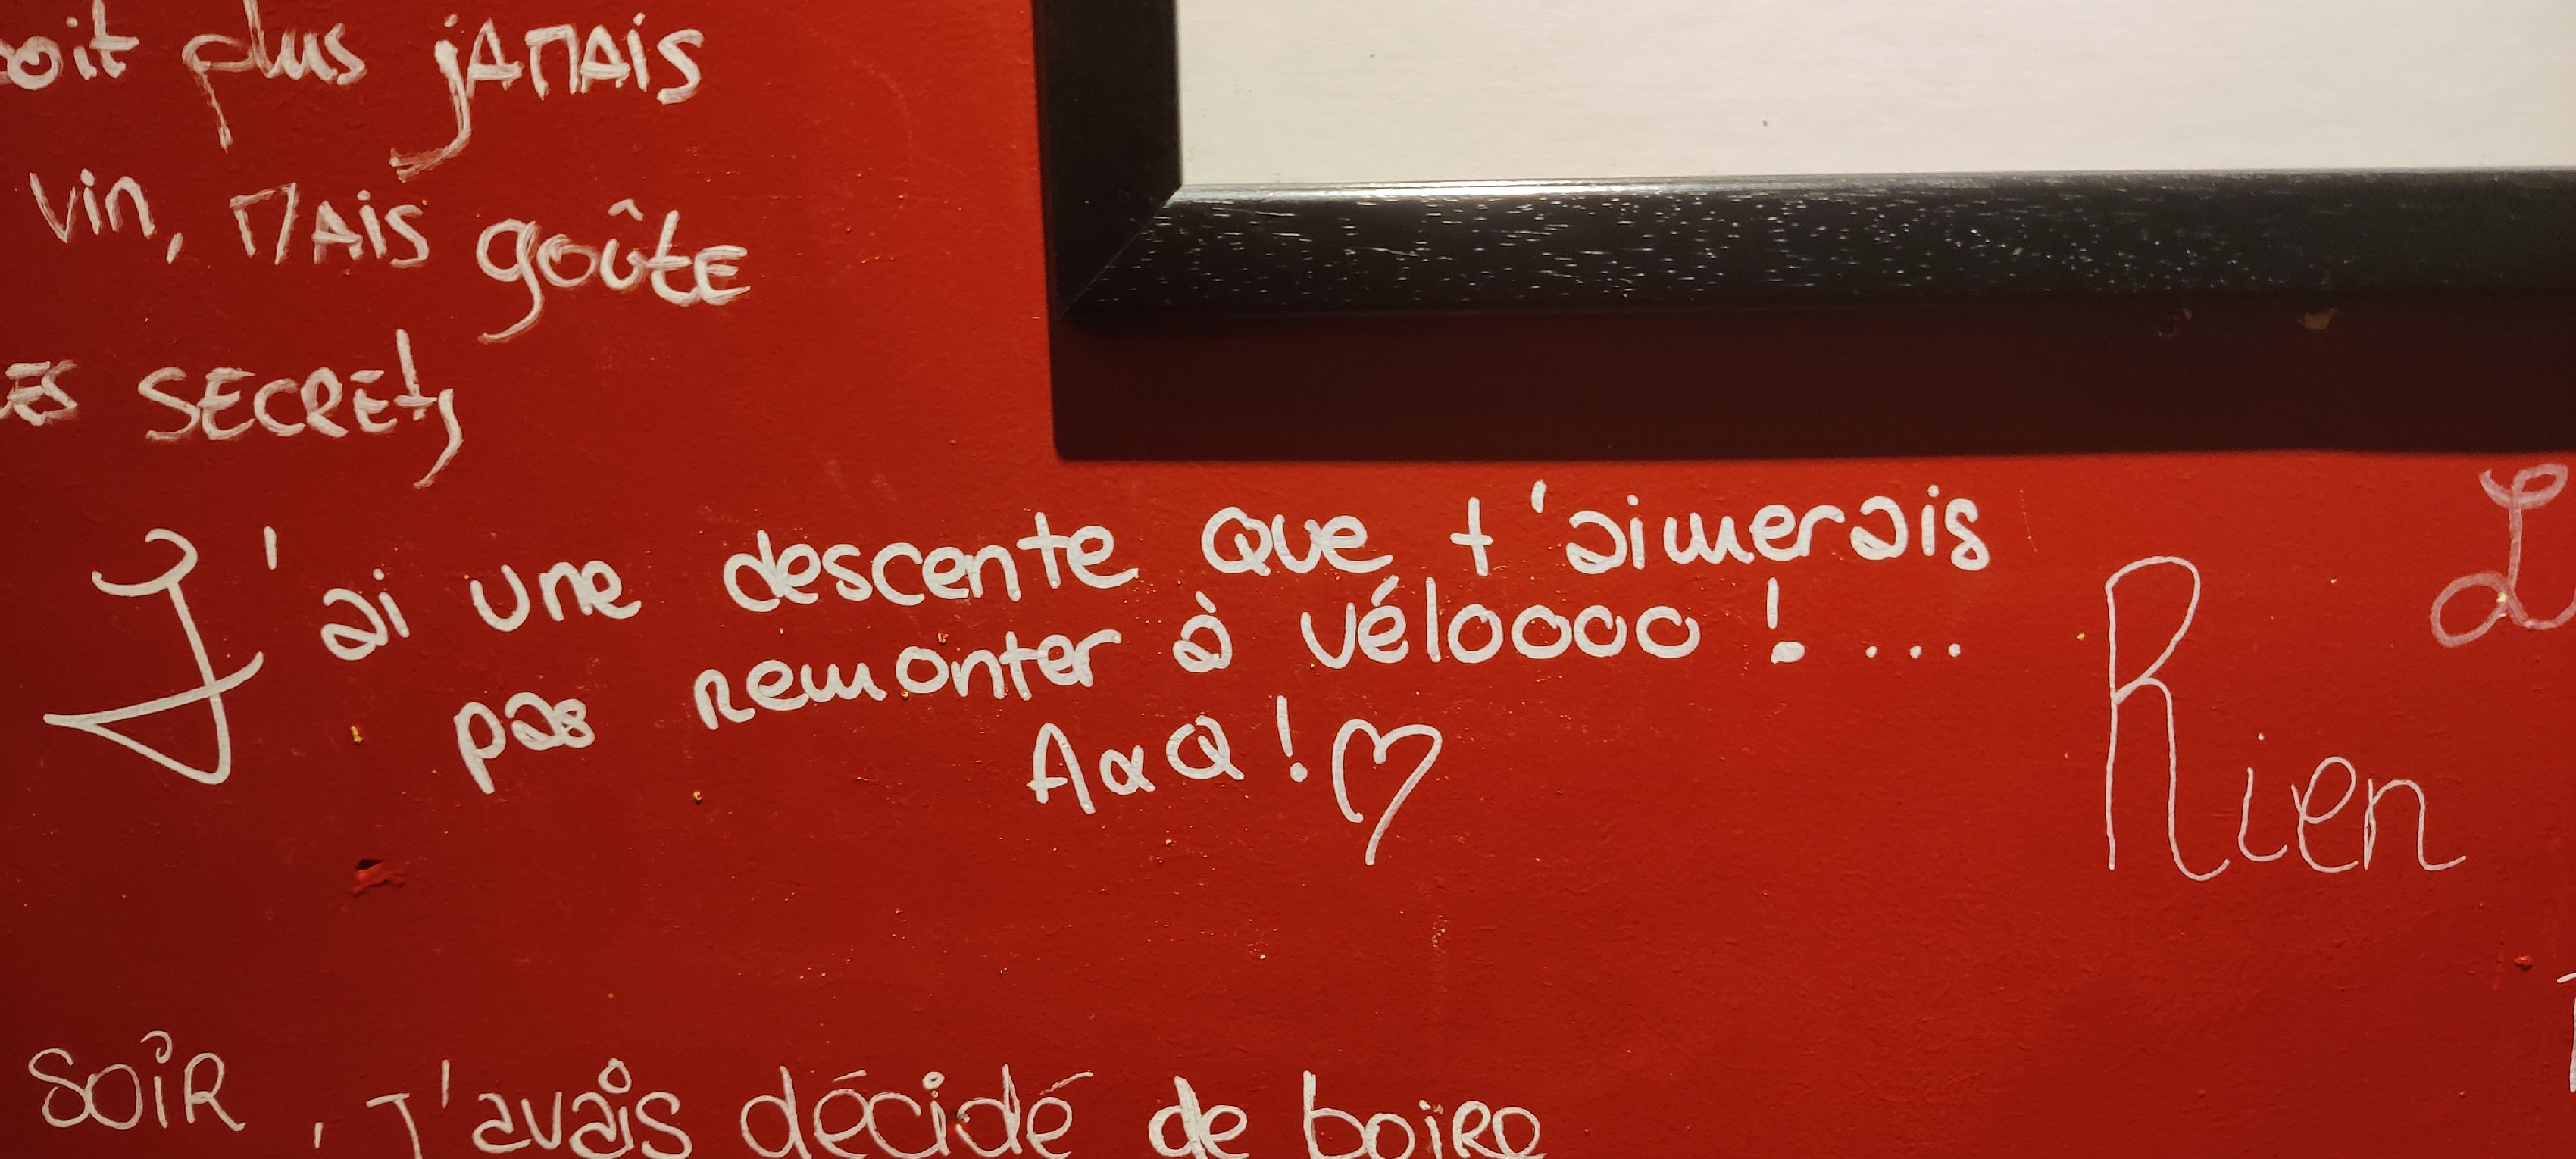 plus jamais
vin, mais goûte
secrets
J'ai une descente que t'aimerais
pas remonter à véloooo ! ...
A & Q ! ♡
Rien
soir, j'avais décidé de boire